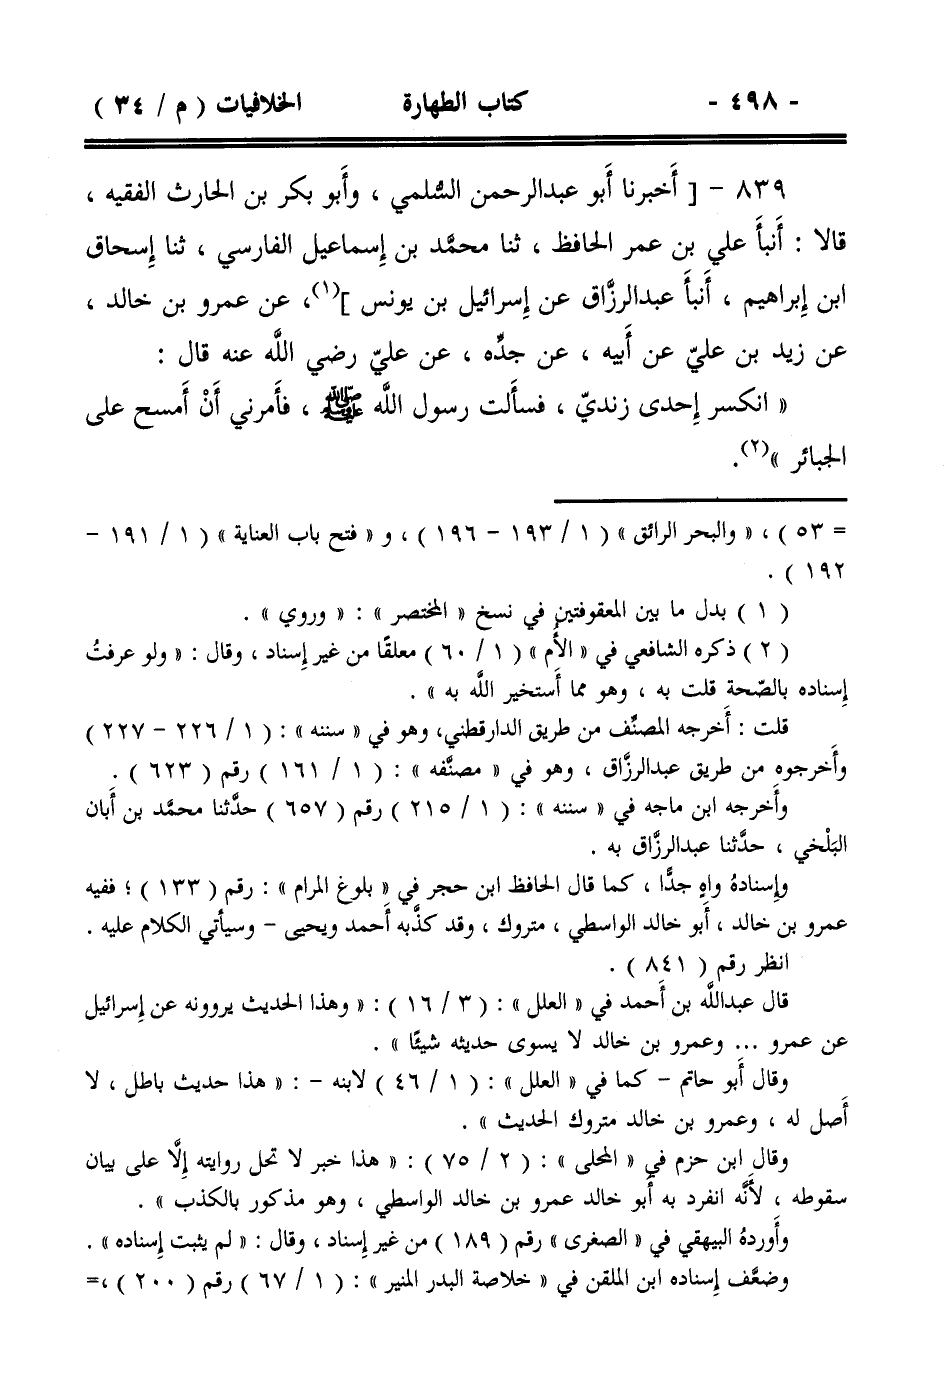 - ٤٩٨ - كتاب الطهارة الخلافيات ( م / ٣٤ )
٨٣٩ - [ أَخبرنا أَبو عبدالرحمن السُّلمي ، وأَبو بكر بن الحارث الفقيه ،
قالا : أَنبأَ علي بن عمر الحافظ ، ثنا محمَّد بن إِسماعيل الفارسي ، ثنا إِسحاق
ابن إِبراهيم ، أَنبأَ عبدالرزَّاق عن إِسرائيل بن يونس ](١)، عن عمرو بن خالد ،
عن زيد بن عليّ عن أَبيه ، عن جدِّه ، عن عليّ رضي اللَّه عنه قال :
« انكسر إِحدى زنديّ ، فسأَلت رسول اللَّه ﷺ ، فأَمرني أَنْ أَمسح على
الجبائر »(٢).
= ٥٣ ) ، « والبحر الرائق » ( ١ / ١٩٣ - ١٩٦ ) ، و « فتح باب العناية » ( ١ / ١٩١ -
١٩٢ ) .
( ١ ) بدل ما بين المعقوفتين في نسخ « المختصر » : « وروي » .
( ٢ ) ذكره الشافعي في « الأُم » ( ١ / ٦٠ ) معلقًا من غير إِسناد ، وقال : « ولو عرفتُ
إِسناده بالصّحة قلت به ، وهو مما أَستخير اللَّه به » .
قلت : أَخرجه المصنِّف من طريق الدارقطني، وهو في « سننه » : ( ١ / ٢٢٦ - ٢٢٧ )
وأَخرجوه من طريق عبدالرزَّاق ، وهو في « مصنَّفه » : ( ١ / ١٦١ ) رقم ( ٦٢٣ ) .
وأَخرجه ابن ماجه في « سننه » : ( ١ / ٢١٥ ) رقم ( ٦٥٧ ) حدَّثنا محمَّد بن أَبان
البَلْخي ، حدَّثنا عبدالرزَّاق به .
وإِسنادهُ واهٍ جدًّا ، كما قال الحافظ ابن حجر في « بلوغ المرام » : رقم ( ١٣٣ ) ؛ ففيه
عمرو بن خالد ، أَبو خالد الواسطي ، متروك ، وقد كذَّبه أَحمد ويحيى - وسيأتي الكلام عليه .
انظر رقم ( ٨٤١ ) .
قال عبداللَّه بن أَحمد في « العلل » : ( ٣ / ١٦ ) : « وهذا الحديث يروونه عن إِسرائيل
عن عمرو ... وعمرو بن خالد لا يسوى حديثه شيئًا » .
وقال أَبو حاتم - كما في « العلل » : ( ١ / ٤٦ ) لابنه - : « هذا حديث باطل ، لا
أَصل له ، وعمرو بن خالد متروك الحديث » .
وقال ابن حزم في « المحلى » : ( ٢ / ٧٥ ) : « هذا خبر لا تحل روايته إِلَّا على بيان
سقوطه ، لأَنَّه انفرد به أَبو خالد عمرو بن خالد الواسطي ، وهو مذكور بالكذب » .
وأَوردهُ البيهقي في « الصغرى » رقم ( ١٨٩ ) من غير إِسناد ، وقال : « لم يثبت إِسناده » .
وضعَّف إِسناده ابن الملقن في « خلاصة البدر المنير » : ( ١ / ٦٧ ) رقم ( ٢٠٠ ) ،=